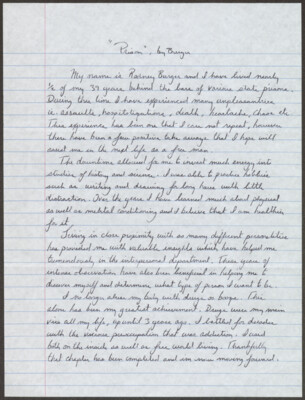 "Prison", by Burger
My name is Rodney Burger and I have lived nearly
½ of my 38 years behind the bars of various state prisons.
During this time I have experienced many unpleasantries
ie. assaults, hospitalizations, death, heartache, chaos etc.
This experience has been one that I can not repeat, however
there have been a few positive take aways that I hope will
assist me in the next life as a free man.
The downtime allowed for me to invest much energy into
studies of history and science. I was able to practice hobbies
such as writing and drawing for long hours with little
distraction. Over the years I have learned much about physical
as well as mental conditioning and I believe that I am healthier
for it.
Living in close proximity with so many different personalities
has provided me with valuable insights which have helped me
tremendously in the interpersonal department. These years of
intense observation have also been beneficial in helping me to
discover myself and determine what type of person I want to be.
I no longer abuse my body with drugs or booze. This
alone has been my greatest achievement. Drugs were my main
vice all my life, up until 3 years ago. I battled for decades
with the vicious preoccupation that was addiction. I used
both on the inside as well as free world living. Thankfully,
that chapter has been completed and im now moving forward.